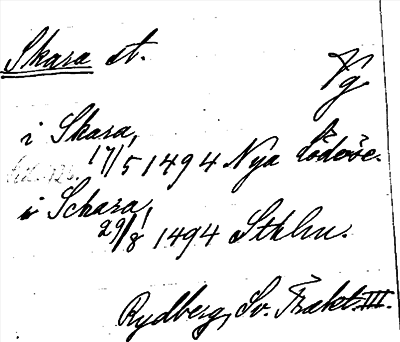 Skara st.
Vg
i Skara,
17/5 1494 Nya Lödöse.
i Schara,
29/8 1494 Sthlm.
Rydberg, Sv. Trakt. III.